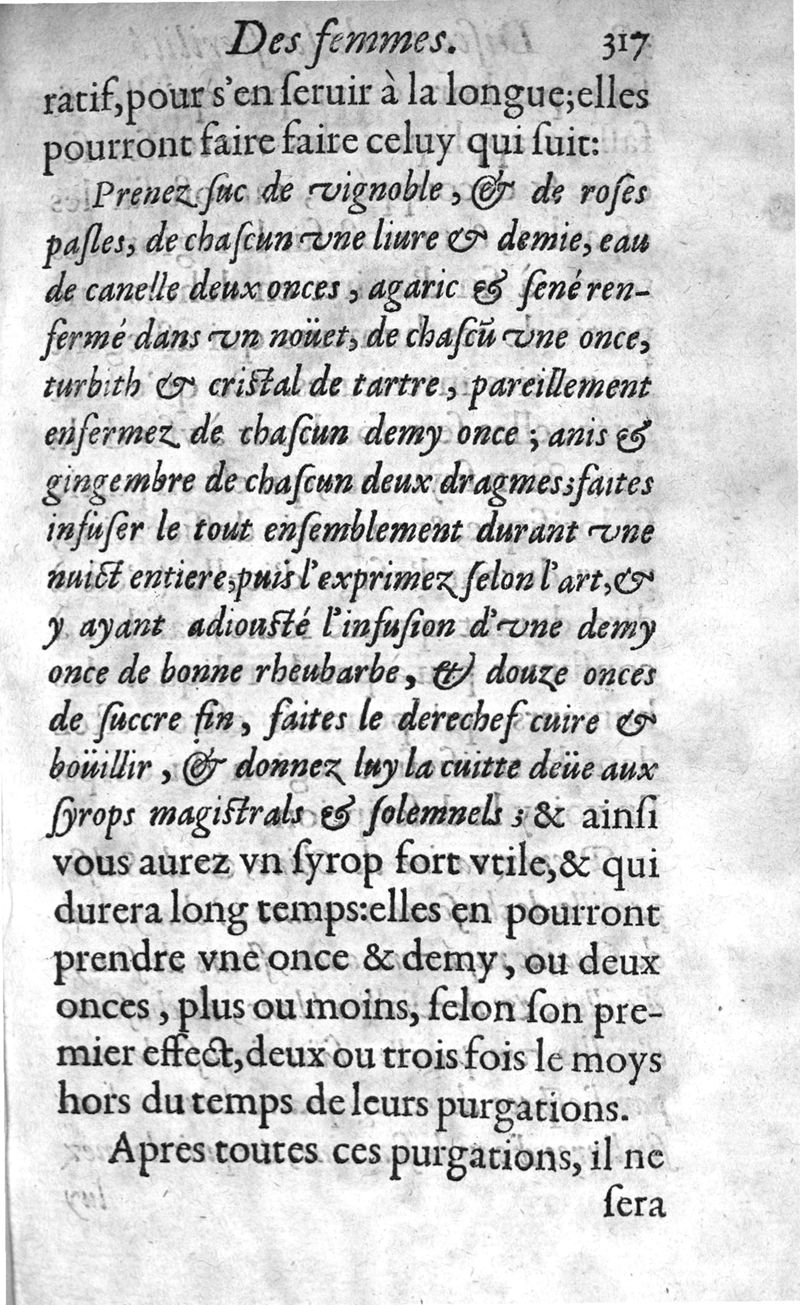 Des femmes. 317
ratif, pour s'en ſeruir à la longue; elles
pourront faire faire celuy qui ſuit:
Prenez ſuc de vignoble, & de roſes
paſles, de chaſcun vne liure & demie, eau
de canelle deux onces, agaric & ſené ren-
fermé dans vn noüet, de chaſcũ vne once,
turbith & criſtal de tartre, pareillement
enfermez de chaſcun demy once; anis &
gingembre de chaſcun deux dragmes; faites
infuſer le tout enſemblement durant vne
nuict entiere, puis l'exprimez ſelon l'art, &
y ayant adiouſté l'infuſion d'vne demy
once de bonne rheubarbe, & douze onces
de ſuccre fin, faites le derechef cuire &
boüillir, & donnez luy la cuitte deüe aux
ſyrops magiſtrals & ſolemnels; & ainſi
vous aurez vn ſyrop fort vtile, & qui
durera long temps: elles en pourront
prendre vne once & demy, ou deux
onces, plus ou moins, ſelon ſon pre-
mier effect, deux ou trois fois le moys
hors du temps de leurs purgations.
Apres toutes ces purgations, il ne
ſera